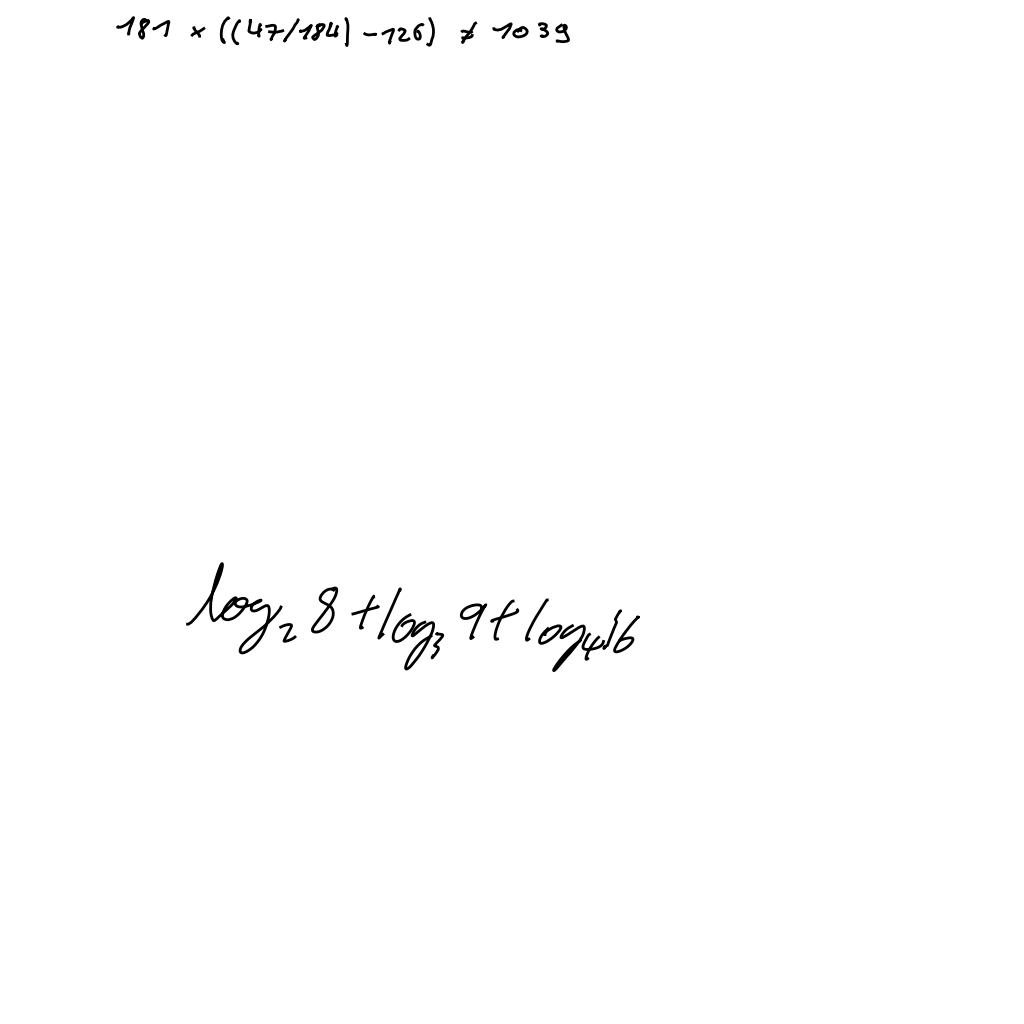 181 × ((47/184) - 126) ≠ 1039
log₂ 8 + log₃ 9 + log₄ 16